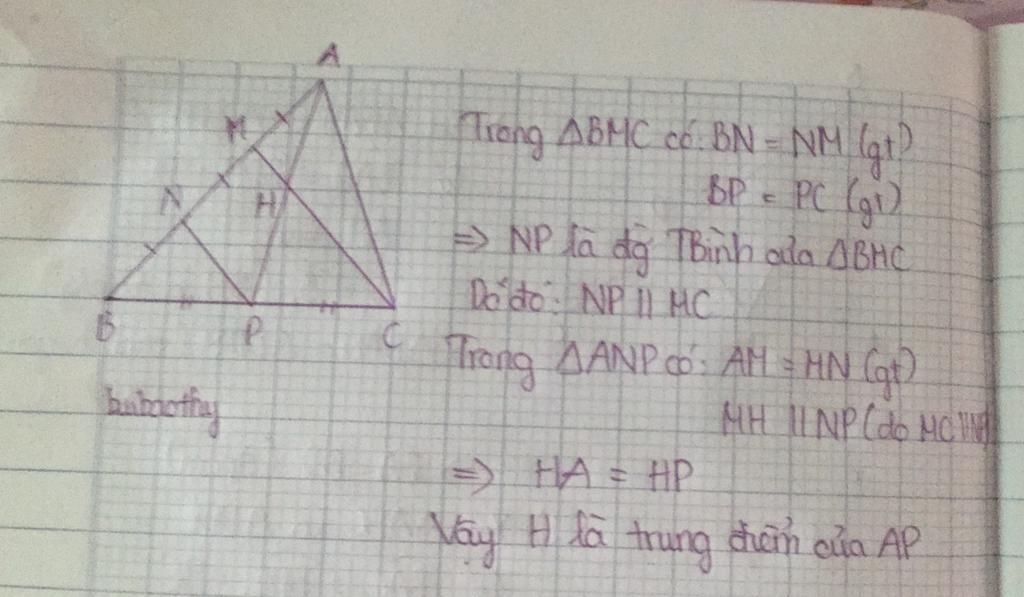 A
M
Trong ΔBMC có: BN = NM (gt)
N
H
BP = PC (gt)
⇒ NP là đg TBình của ΔBMC
Do đó: NP // MC
B
P
C
Trong ΔANP có: AM = MN (gt)
MH // NP (do MC // NP)
⇒ HA = HP
Vậy H là trung điểm của AP